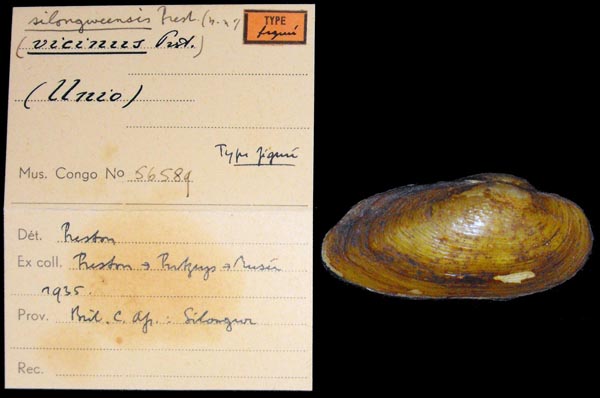 silongweensis Prest. (n. n.?)
TYPE
figuré
(vicinus Prst.)
(Unio)
Type figuré
Mus. Congo No 56589
Dét. Preston
Ex coll. Preston → Putzeys → Musée
1935.
Prov. Brit. C. Af. : Silongwe
Rec.